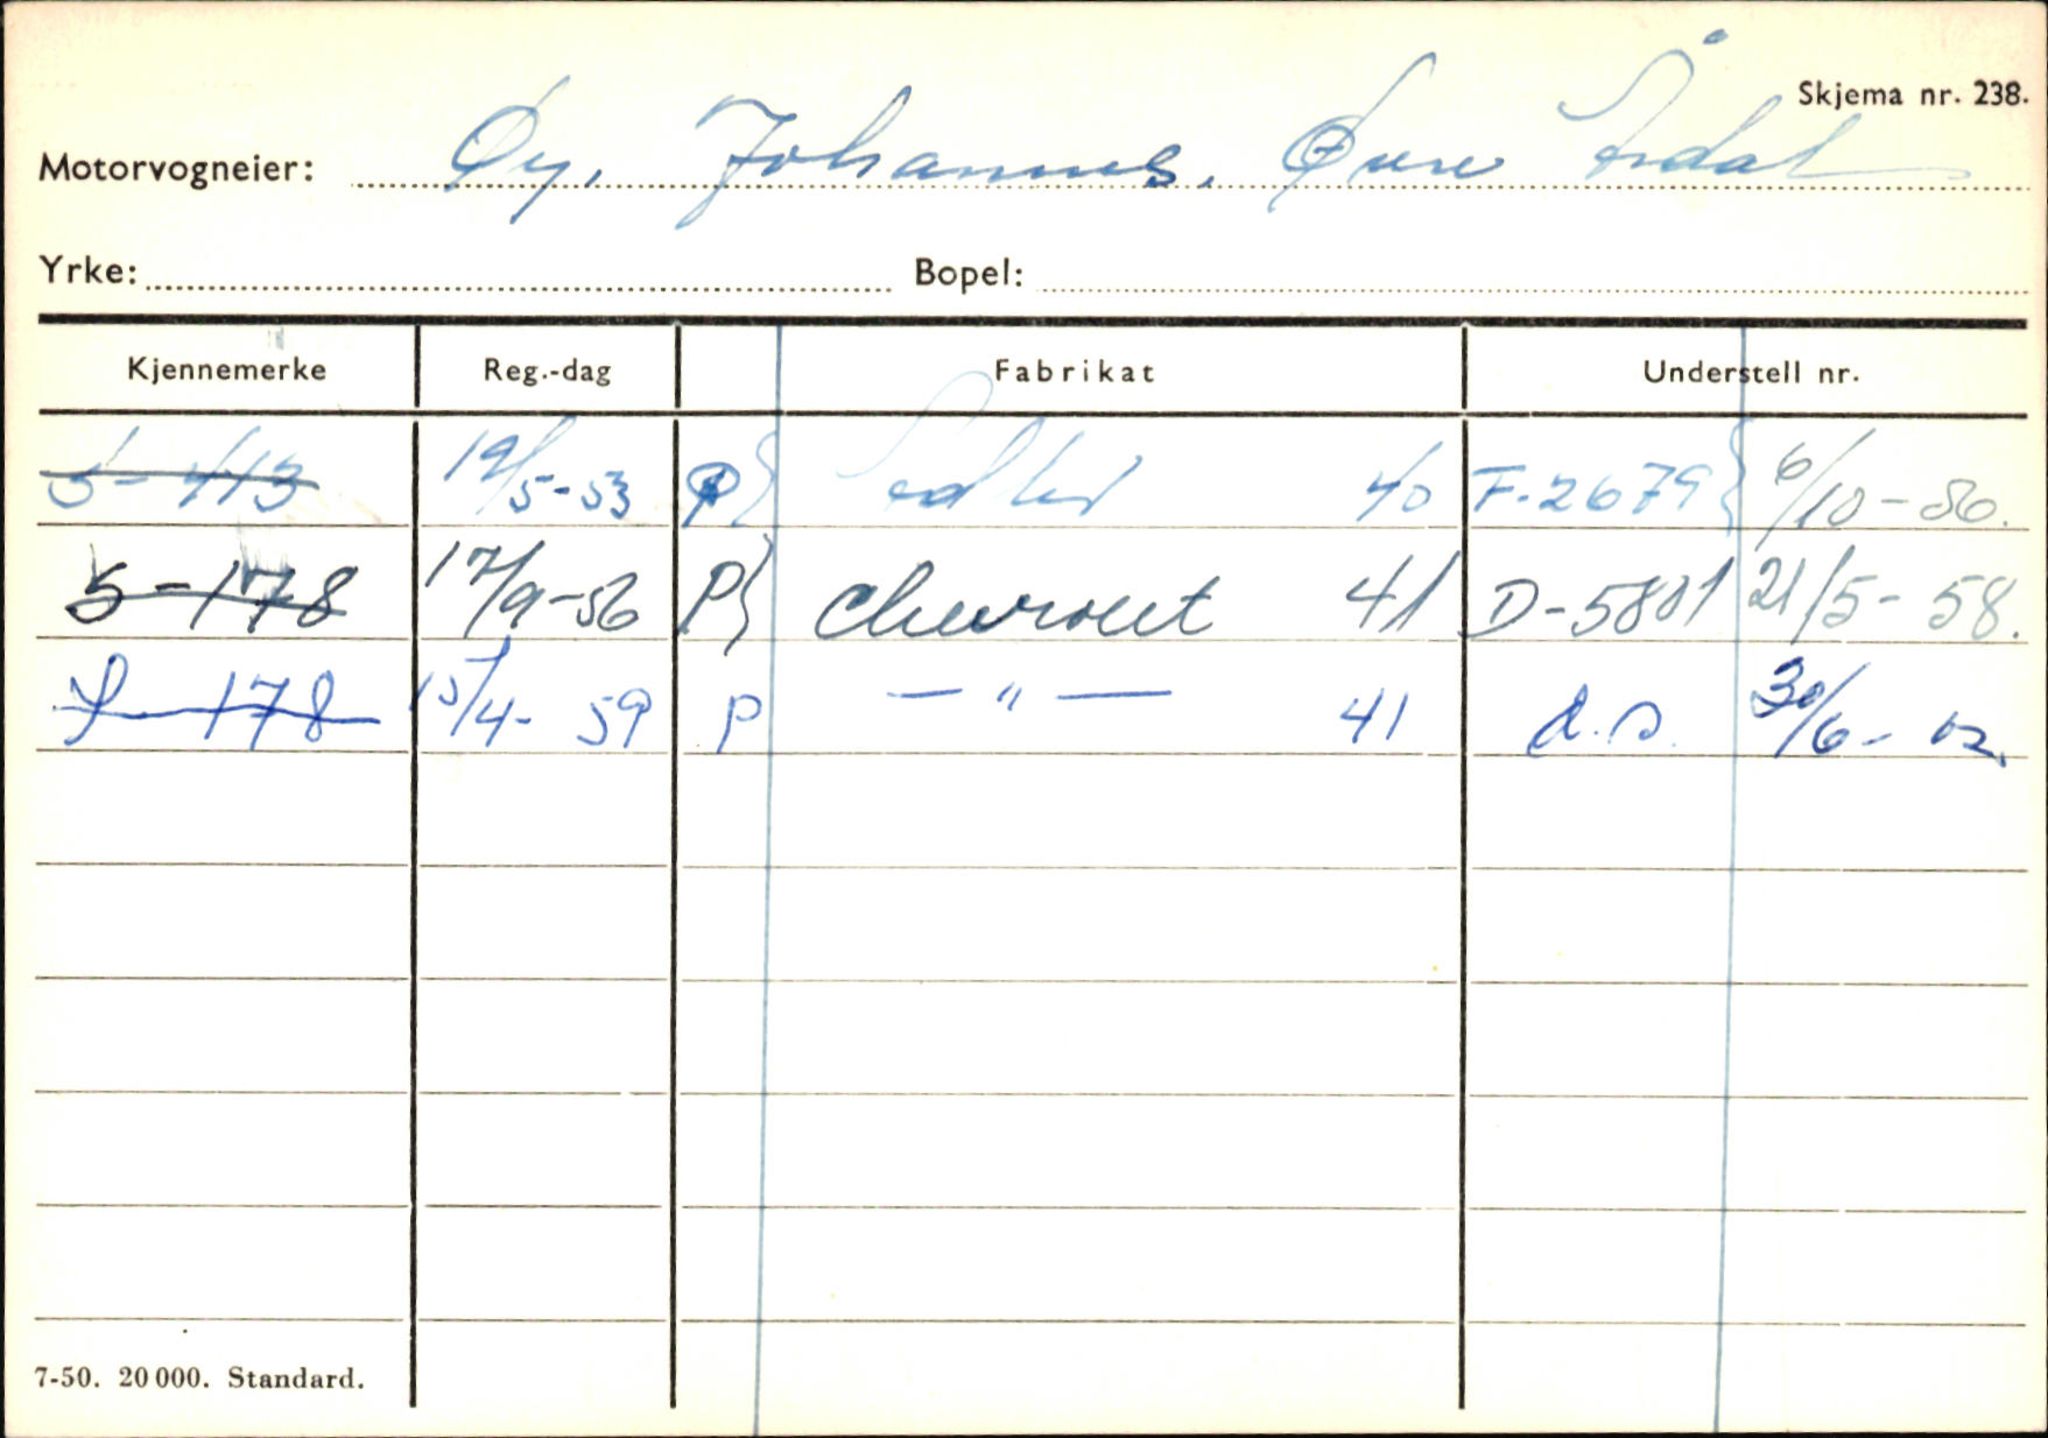 Skjema nr. 238.
Motorvogneier: Øy, Johannes. Øvre Årdal
Yrke: Bopel:
Kjennemerke Reg.-dag Fabrikat Understell nr.
S-413 19/5-53 P Adler 40 F-2679 6/10-56.
S-178 17/9-56 P Chevrolet 41 D-5801 21/5-58.
S-178 15/4-59 P — " — 41 d.s. 30/6-
7-50. 20 000. Standard.